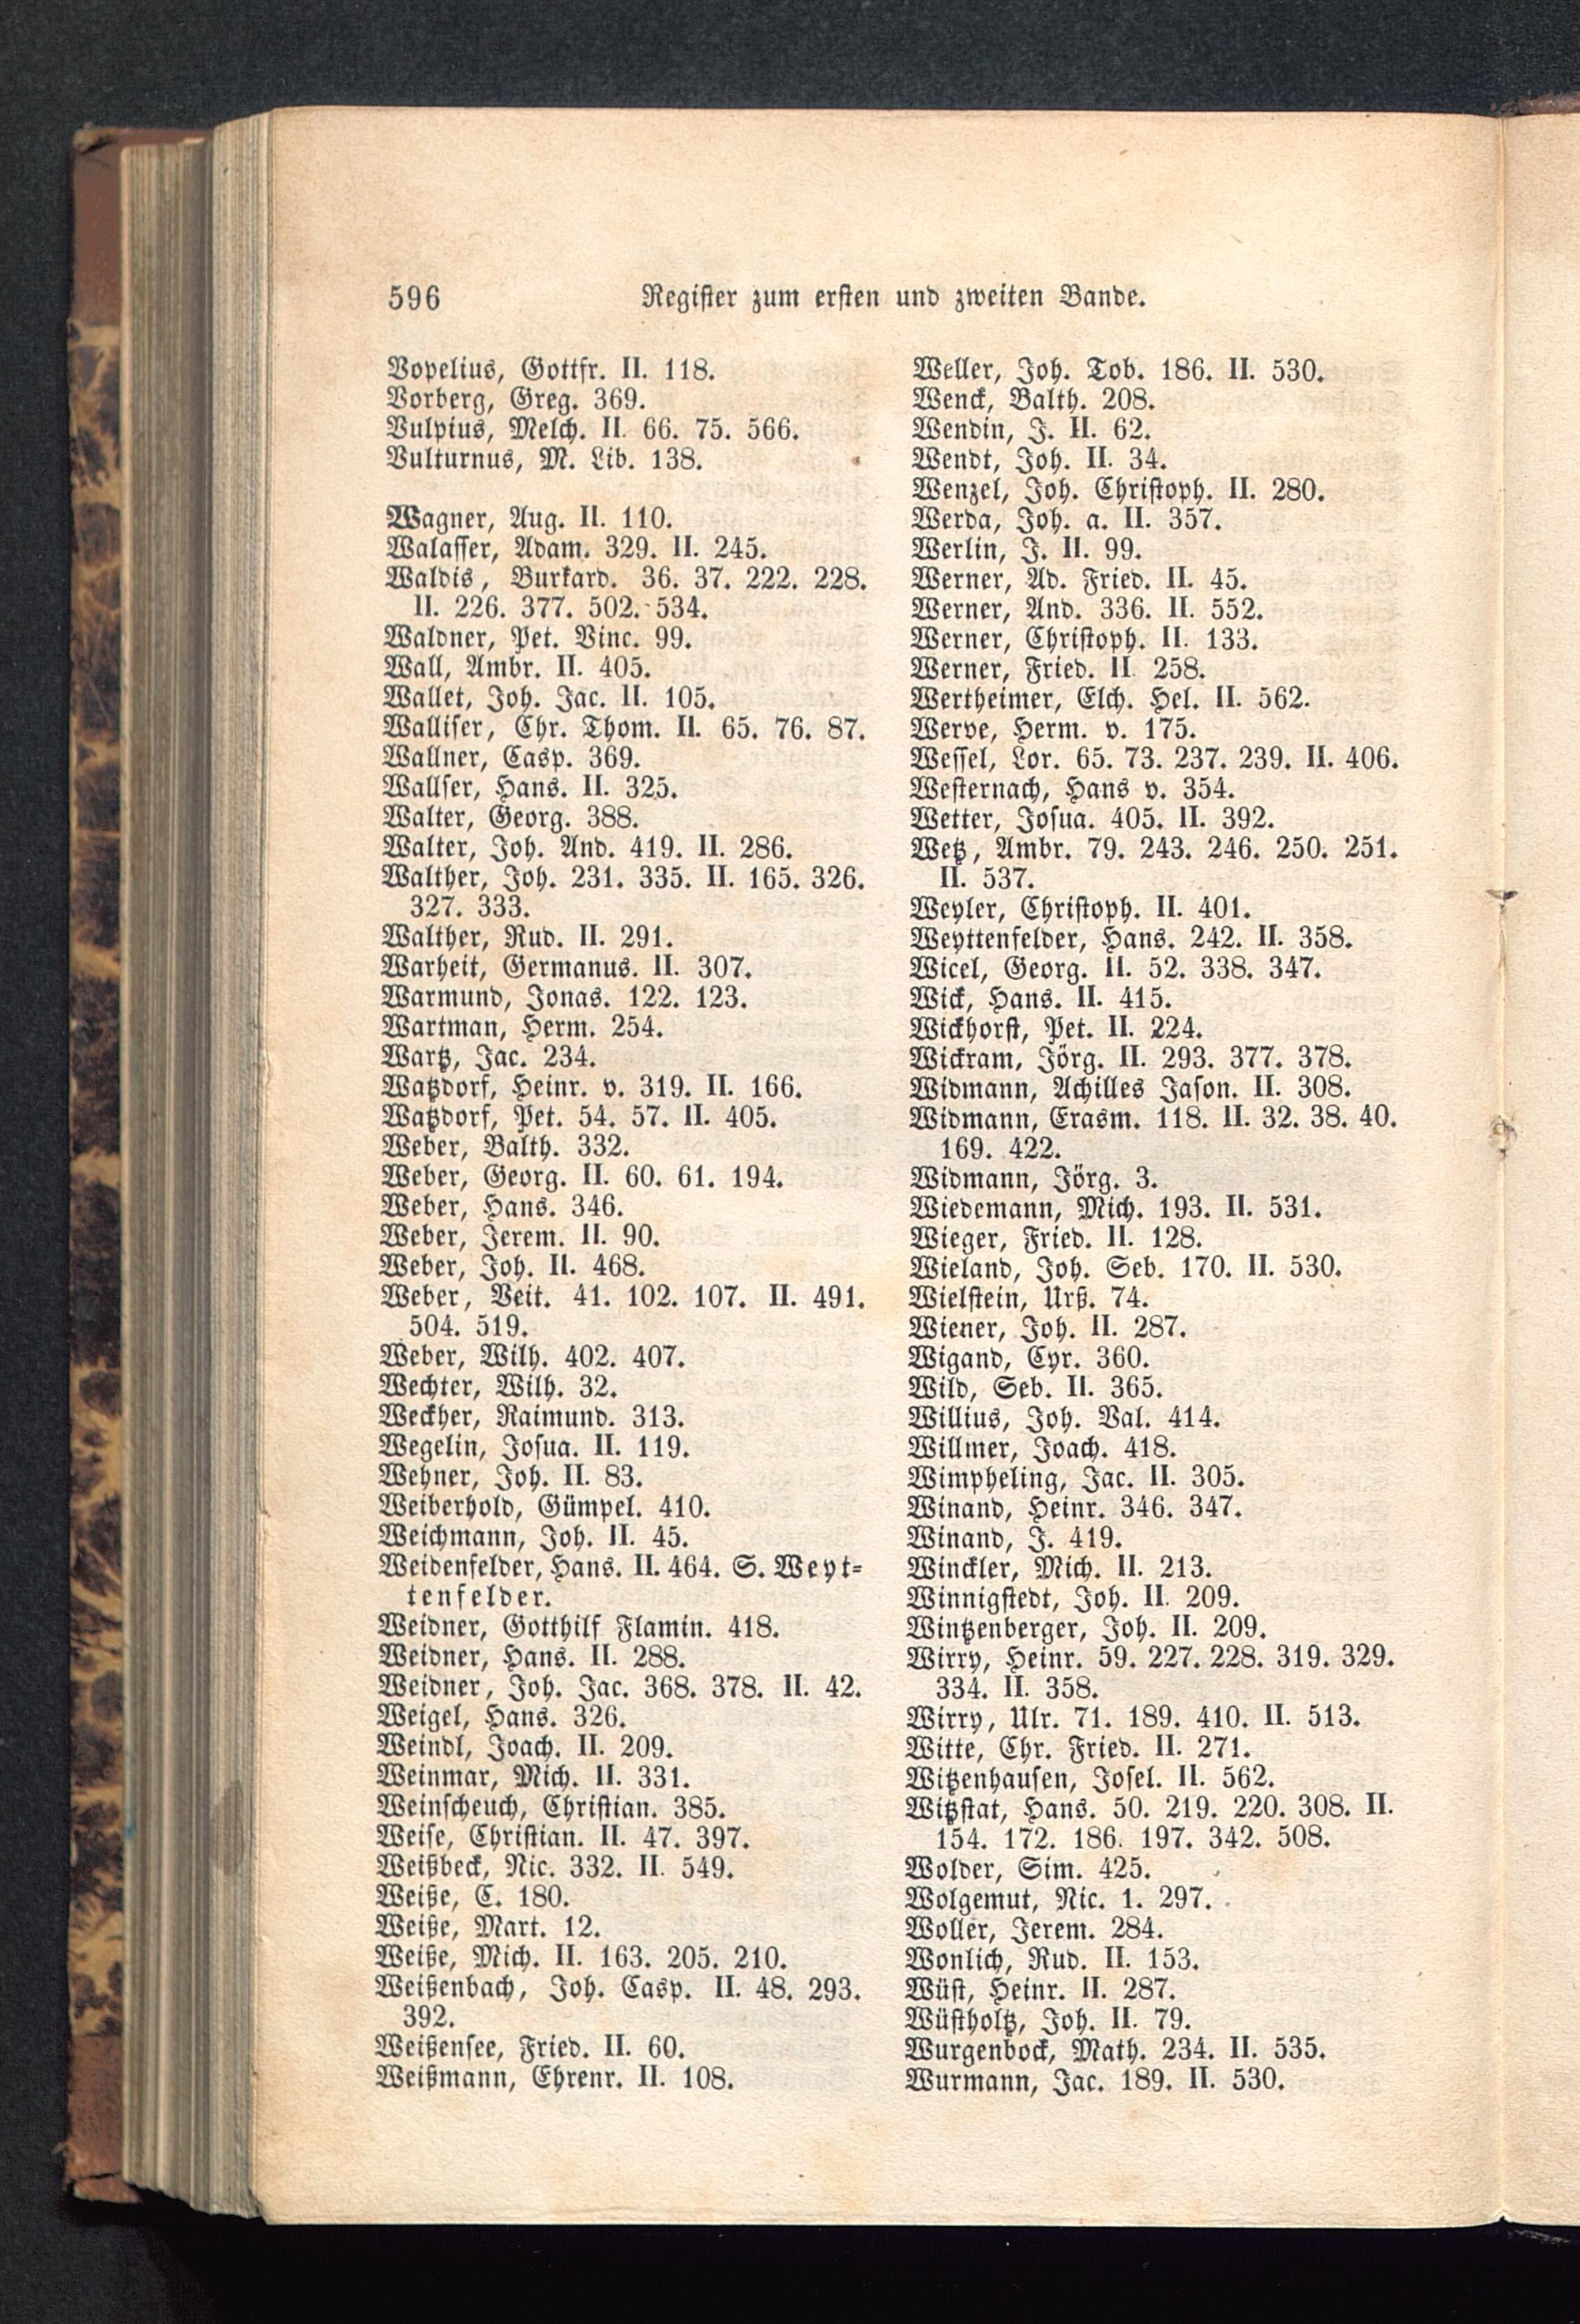 596
Register zum ersten und zweiten Bande.
Vopelius, Gottfr. II. 118.
Vorberg, Greg. 369.
Vulpius, Melch. II. 66. 75. 566.
Vulturnus, M. Lib. 138.
Wagner, Aug. II. 110.
Walasser, Adam. 329. II. 245.
Waldis, Burkard. 36. 37. 222. 228.
II. 226. 377. 502. 534.
Waldner, Pet. Vinc. 99.
Wall, Ambr. II. 405.
Wallet, Joh. Jac. II. 105.
Walliser, Chr. Thom. II. 65. 76. 87.
Wallner, Casp. 369.
Wallser, Hans. II. 325.
Walter, Georg. 388.
Walter, Joh. And. 419. II. 286.
Walther, Joh. 231. 335. II. 165. 326.
327. 333.
Walther, Rud. II. 291.
Warheit, Germanus. II. 307.
Warmund, Jonas. 122. 123.
Wartman, Herm. 254.
Wartz, Jac. 234.
Watzdorf, Heinr. v. 319. II. 166.
Watzdorf, Pet. 54. 57. II. 405.
Weber, Balth. 332.
Weber, Georg. II. 60. 61. 194.
Weber, Hans. 346.
Weber, Jerem. II. 90.
Weber, Joh. II. 468.
Weber, Veit. 41. 102. 107. II. 491.
504. 519.
Weber, Wilh. 402. 407.
Wechter, Wilh. 32.
Weckher, Raimund. 313.
Wegelin, Josua. II. 119.
Wehner, Joh. II. 83.
Weiberhold, Gümpel. 410.
Weichmann, Joh. II. 45.
Weidenfelder, Hans. II. 464. S. Weyt-
tenfelder.
Weidner, Gotthilf Flamin. 418.
Weidner, Hans. II. 288.
Weidner, Joh. Jac. 368. 378. II. 42.
Weigel, Hans. 326.
Weindl, Joach. II. 209.
Weinmar, Mich. II. 331.
Weinscheuch, Christian. 385.
Weise, Christian. II. 47. 397.
Weißbeck, Nic. 332. II. 549.
Weiße, C. 180.
Weiße, Mart. 12.
Weiße, Mich. II. 163. 205. 210.
Weißenbach, Joh. Casp. II. 48. 293.
392.
Weißensee, Fried. II. 60.
Weißmann, Ehrenr. II. 108.
Weller, Joh. Tob. 186. II. 530.
Wenck, Balth. 208.
Wendin, J. II. 62.
Wendt, Joh. II. 34.
Wenzel, Joh. Christoph. II. 280.
Werda, Joh. a. II. 357.
Werlin, J. II. 99.
Werner, Ad. Fried. II. 45.
Werner, And. 336. II. 552.
Werner, Christoph. II. 133.
Werner, Fried. II. 258.
Wertheimer, Elch. Hel. II. 562.
Werve, Herm. v. 175.
Wessel, Lor. 65. 73. 237. 239. II. 406.
Westernach, Hans v. 354.
Wetter, Josua. 405. II. 392.
Wetz, Ambr. 79. 243. 246. 250. 251.
II. 537.
Weyler, Christoph. II. 401.
Weyttenfelder, Hans. 242. II. 358.
Wicel, Georg. II. 52. 338. 347.
Wick, Hans. II. 415.
Wickhorst, Pet. II. 224.
Wickram, Jörg. II. 293. 377. 378.
Widmann, Achilles Jason. II. 308.
Widmann, Erasm. 118. II. 32. 38. 40.
169. 422.
Widmann, Jörg. 3.
Wiedemann, Mich. 193. II. 531.
Wieger, Fried. II. 128.
Wieland, Joh. Seb. 170. II. 530.
Wielstein, Urß. 74.
Wiener, Joh. II. 287.
Wigand, Cyr. 360.
Wild, Seb. II. 365.
Willius, Joh. Val. 414.
Willmer, Joach. 418.
Wimpheling, Jac. II. 305.
Winand, Heinr. 346. 347.
Winand, J. 419.
Winckler, Mich. II. 213.
Winnigstedt, Joh. II. 209.
Wintzenberger, Joh. II. 209.
Wirry, Heinr. 59. 227. 228. 319. 329.
334. II. 358.
Wirry, Ulr. 71. 189. 410. II. 513.
Witte, Chr. Fried. II. 271.
Witzenhausen, Josel. II. 562.
Witzstat, Hans. 50. 219. 220. 308. II.
154. 172. 186. 197. 342. 508.
Wolder, Sim. 425.
Wolgemut, Nic. 1. 297.
Woller, Jerem. 284.
Wonlich, Rud. II. 153.
Wüst, Heinr. II. 287.
Wüstholtz, Joh. II. 79.
Wurgenbock, Math. 234. II. 535.
Wurmann, Jac. 189. II. 530.